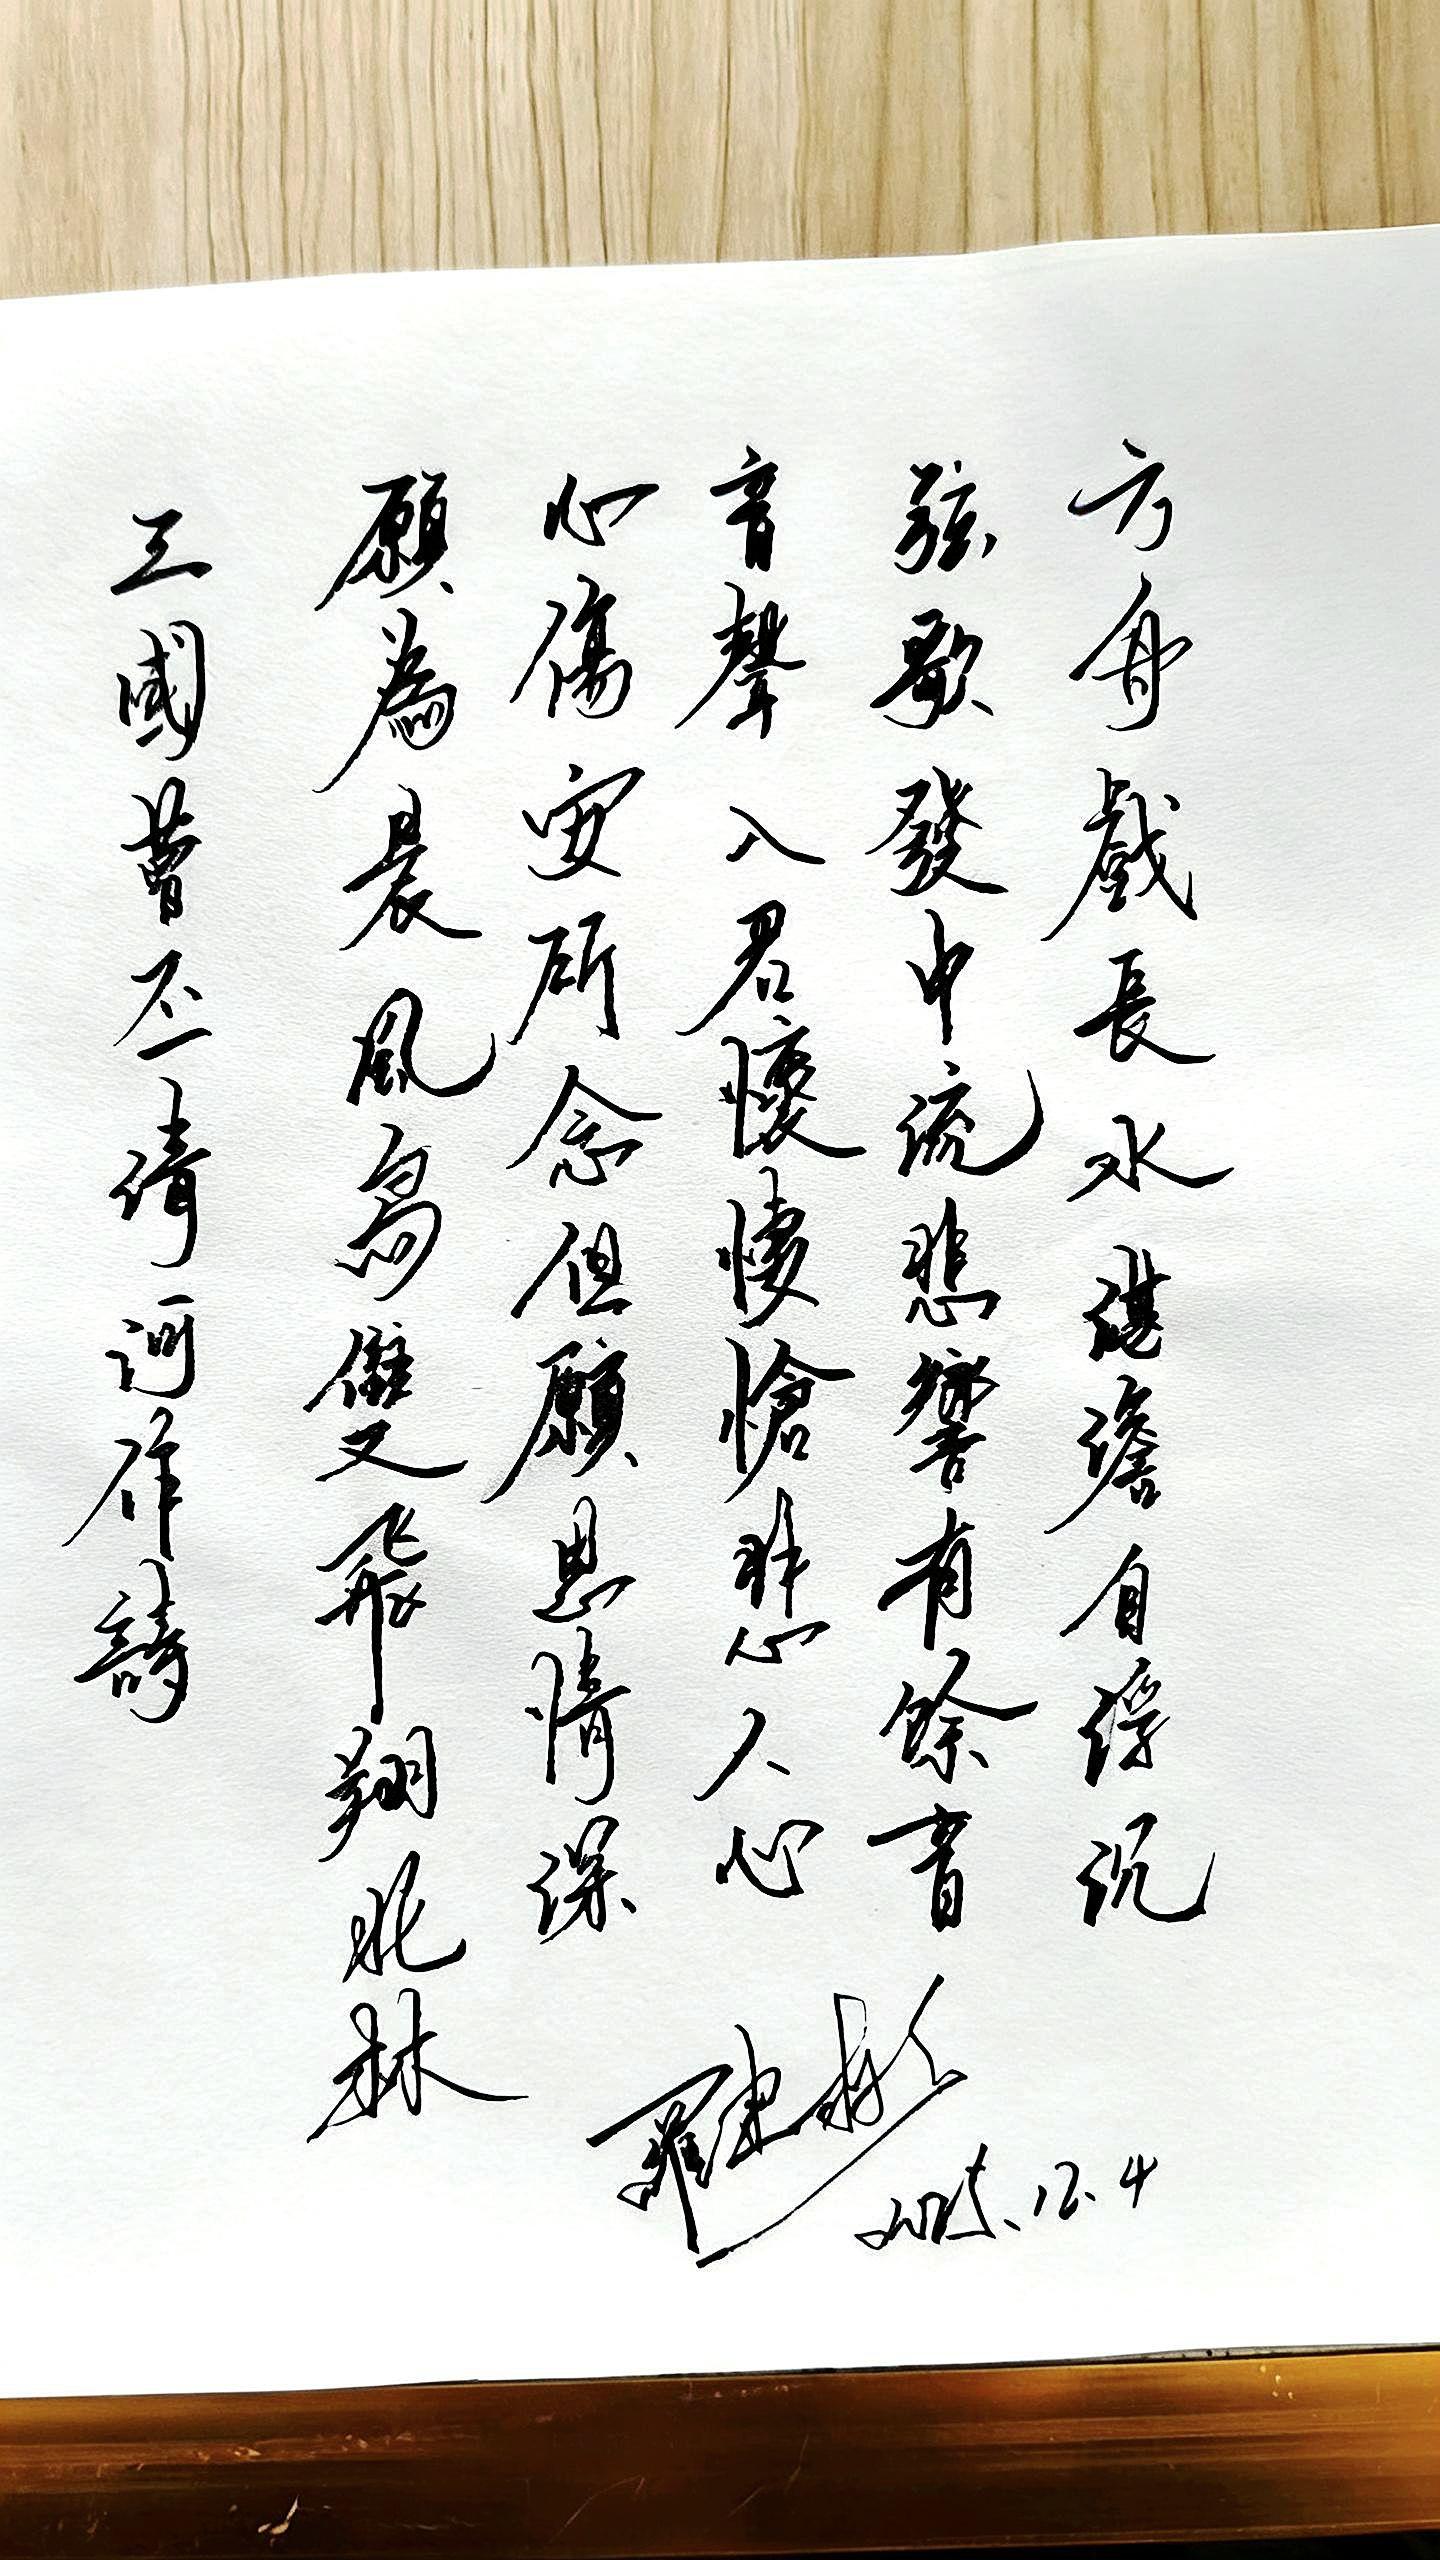 方舟戲長水湛澹自浮沉
弦歌發中流悲響有餘音
音聲入君懷悽愴悲人心
心傷安所念但願恩情深
願為晨風鳥雙飛翔北林
三國曹丕清河作詩
羅建彬
2025.12.4